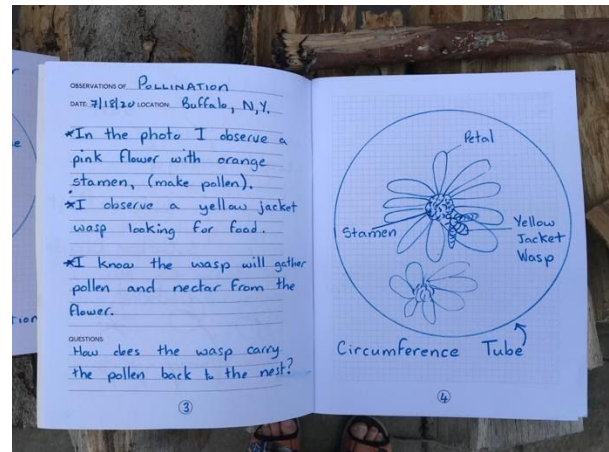 OBSERVATIONS OF POLLINATION
DATE 7/18/20 LOCATION Buffalo, N,Y.
*In the photo I observe a
pink flower with orange
stamen, (make pollen).
*I observe a yellow jacket
wasp looking for food.
*I know the wasp will gather
pollen and nectar from the
flower.
QUESTIONS
How does the wasp carry
the pollen back to the nest?
3
Petal
Stamen
Yellow
Jacket
Wasp
Circumference Tube
4